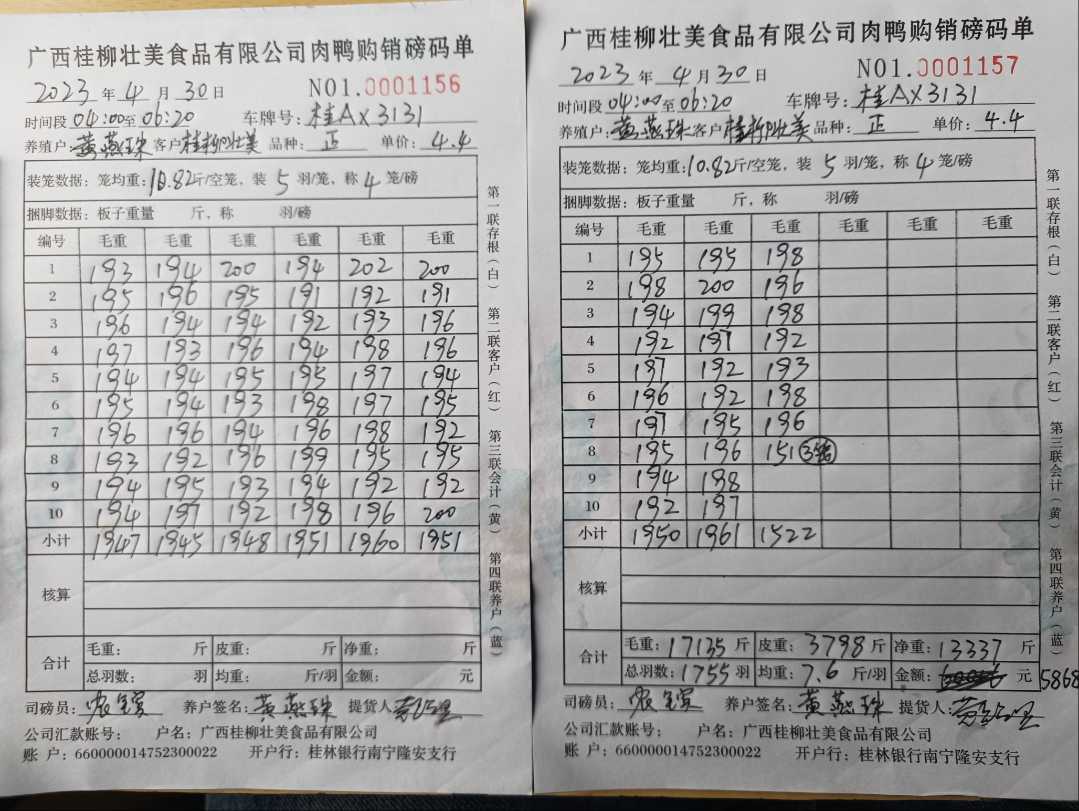 广西桂柳壮美食品有限公司肉鸭购销磅码单
2023年4月30日 NO1.0001156
时间段04:00至06:20 车牌号：桂AX3131
养殖户：黄燕珠 客户桂柳壮美 品种：正 单价：4.4
装笼数据：笼均重：10.82斤/空笼，装5羽/笼，称4笼/磅
捆脚数据：板子重量 斤，称 羽/磅
编号 毛重 毛重 毛重 毛重 毛重 毛重
1 193 194 200 194 202 200
2 195 196 195 191 192 191
3 196 194 194 192 193 196
4 197 193 196 194 198 196
5 194 194 195 195 197 194
6 195 194 193 198 197 195
7 196 196 194 196 198 192
8 193 192 196 199 195 195
9 194 195 193 194 192 192
10 194 197 192 198 196 200
小计 1947 1945 1948 1951 1960 1951
核算
合计 毛重： 斤 皮重： 斤 净重： 斤
总羽数： 羽 均重： 斤/羽 金额： 元
司磅员： 养户签名：黄燕珠 提货人
公司汇款账号： 户名：广西桂柳壮美食品有限公司
账 户：660000014752300022 开户行：桂林银行南宁隆安支行
第一联存根（白） 第二联客户（红） 第三联会计（黄） 第四联养户（蓝）
广西桂柳壮美食品有限公司肉鸭购销磅码单
2023年4月30日 NO1.0001157
时间段04:00至06:20 车牌号：桂AX3131
养殖户：黄燕珠 客户桂柳壮美 品种：正 单价：4.4
装笼数据：笼均重：10.82斤/空笼，装5羽/笼，称4笼/磅
捆脚数据：板子重量 斤，称 羽/磅
编号 毛重 毛重 毛重 毛重 毛重 毛重
1 195 195 198
2 198 200 196
3 194 199 198
4 192 197 192
5 197 192 193
6 196 192 198
7 197 195 196
8 195 196 151 3笼
9 194 198
10 192 197
小计 1950 1961 1522
核算
合计 毛重：17135斤 皮重：3798斤 净重：13337斤
总羽数：1755羽 均重：7.6斤/羽 金额： 元 5868
司磅员： 养户签名：黄燕珠 提货人：
公司汇款账号： 户名：广西桂柳壮美食品有限公司
账 户：660000014752300022 开户行：桂林银行南宁隆安支行
第一联存根（白） 第二联客户（红） 第三联会计（黄） 第四联养户（蓝）